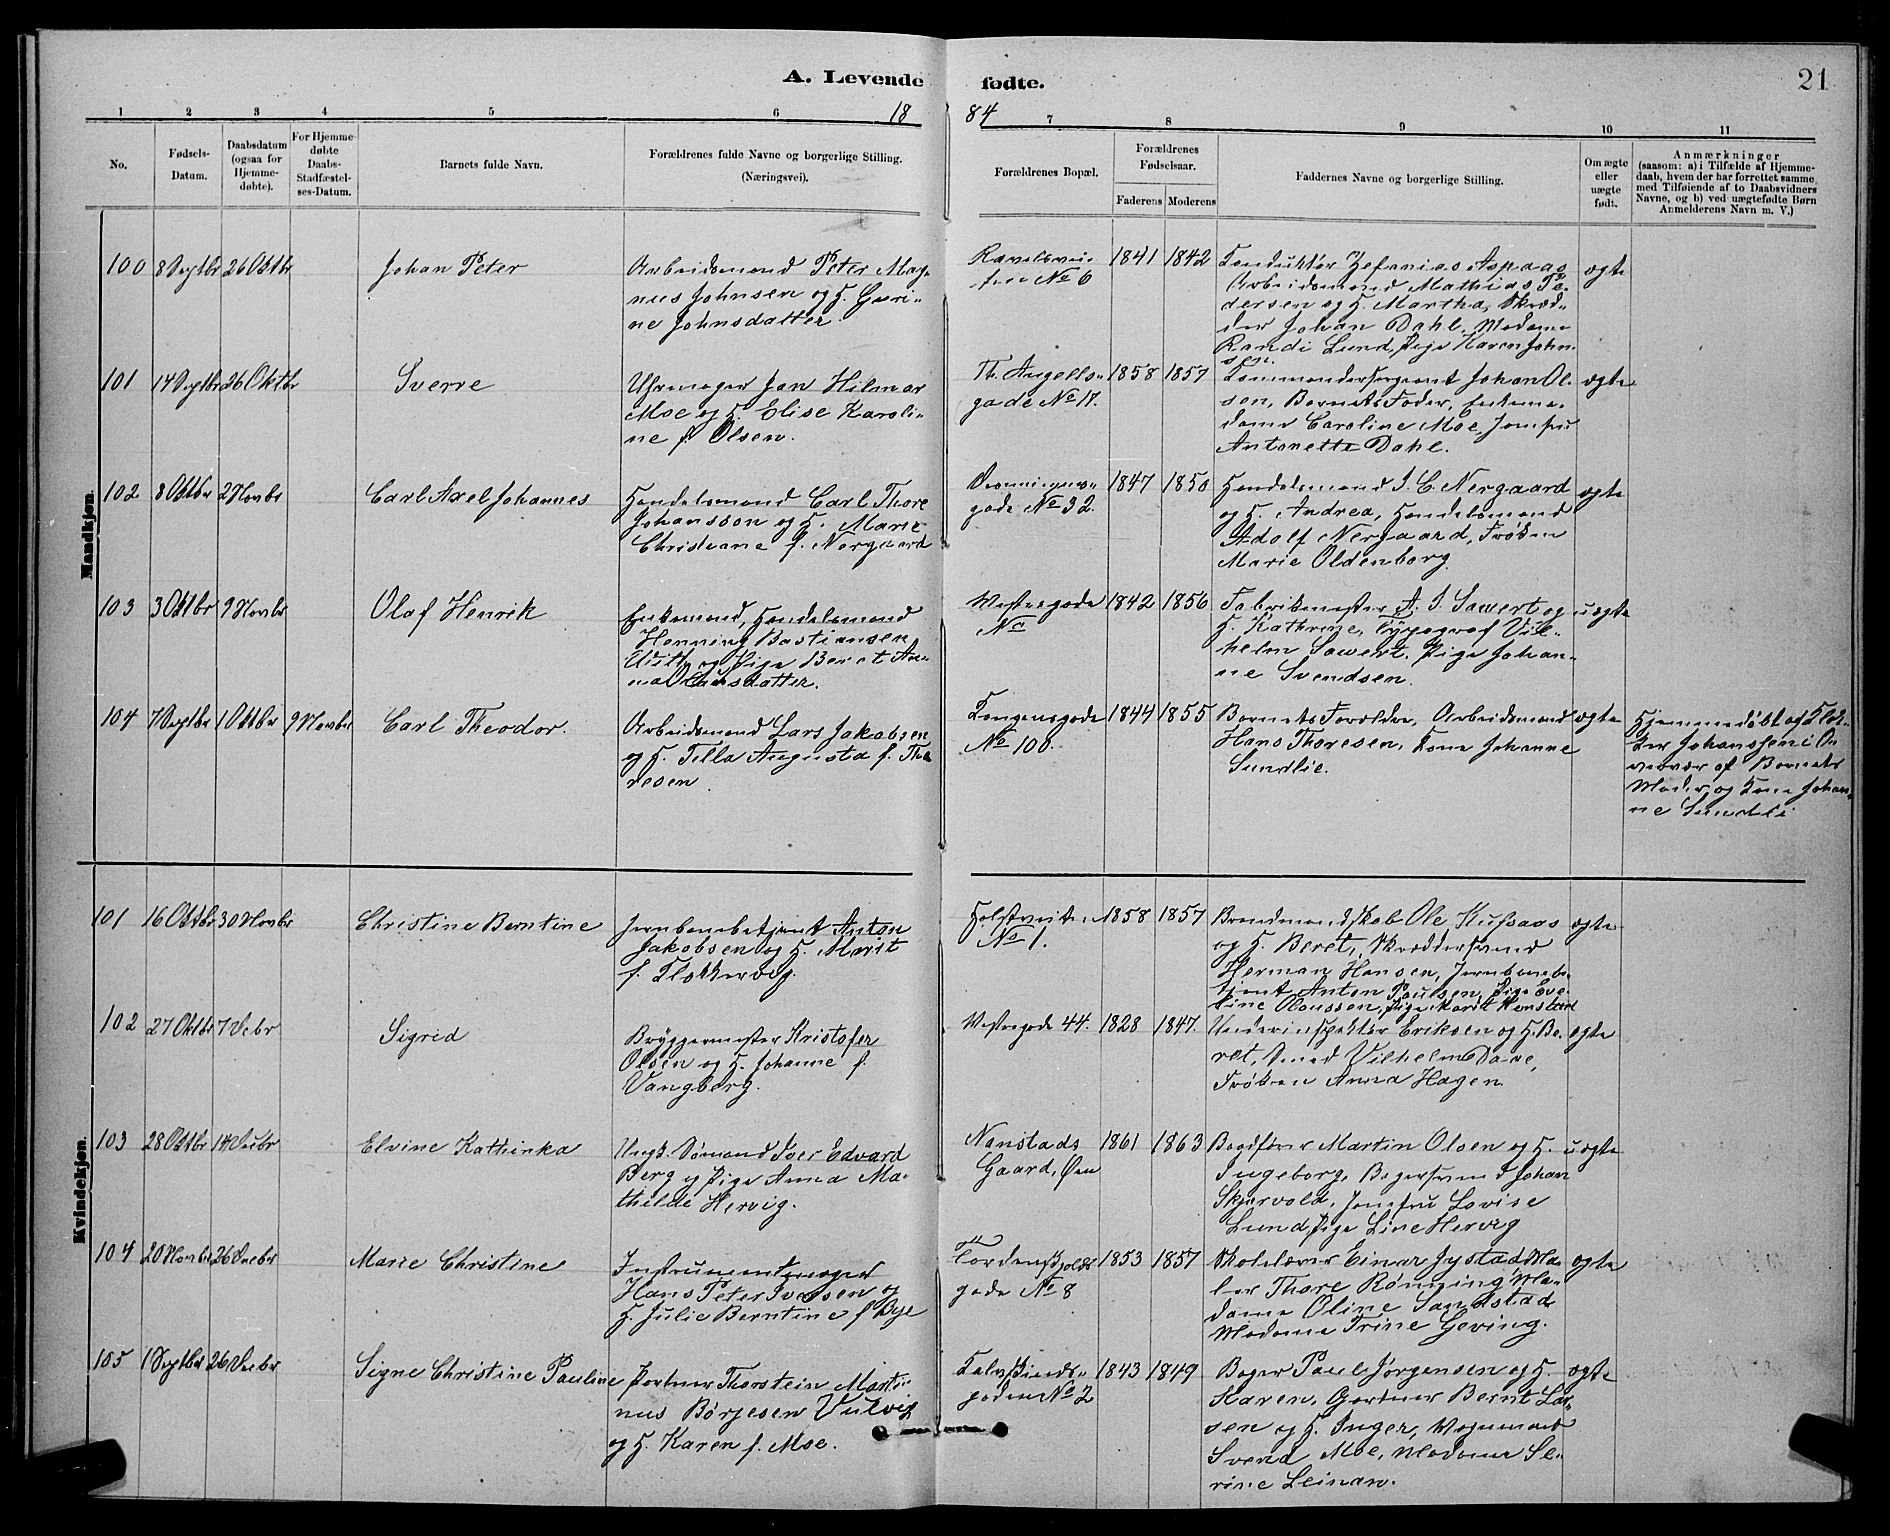 A. Levende fødte.
21
1884
1 2 3 4 5 6 7 8 9 10 11
No.
Fødsels-Datum.
Daabsdatum (ogsaa for Hjemmedøbte).
For Hjemmedøbte Daabs-Stadfæstelses-Datum.
Barnets fulde Navn.
Forældrenes fulde Navne og borgerlige Stilling. (Næringsvei).
Forældrenes Bopæl.
Forældrenes Fødselsaar.
Faderens Moderens
Faddernes Navne og borgerlige Stilling.
Om ægte eller uægte født.
Anmærkninger
(saasom: a) i Tilfælde af Hjemme-
daab, hvem der har forrettet samme,
med Tilføiende af to Daabsvidners
Navne, og b) ved uægtefødte Børn
Anmelderens Navn m. V.)
Mandkjøn.
100 8 Septbr 26 Oktbr
Johan Peter
Arbeidsmand Peter Mag-
nus Johnsen og H. Guri-
ne Johnsdatter.
No 6
1841 1842
Konduktør Zefanias Aspaas
Arbeidsmand Mathias Pe-
dersen og H. Martha, Skræd-
der Johan Dahl, Madame
Randi Lund, Pige Karen John-
sen.
ægte
101 14 Septbr 26 Oktbr
Sverre
Uhrmager Jan Hilmar
Moe og H. Elise Karoli-
ne f. Olsen.
Th. Angells-
gade No 17.
1858 1857
Kommandersergeant Johan Ol-
sen, Barnets Fader, Enkema-
dame Caroline Moe, Jomfru
Antonette Dahl.
ægte
102 8 Oktbr 2 Novbr
Carl Axel Johannes
Handelsmand Carl Thore
Johansson og H. Marie
Christiane f. Nergaard
Dronningens-
gade No 32.
1847 1850
Handelsmand J. C. Nergaard
og H. Andrea, Handelsmand
Adolf Nergaard, Frøken
Marie Oldenborg.
ægte
103 3 Oktbr 9 Novbr
Olaf Henrik
Enkemand, Handelsmand
Henning Bastiansen
With og Pige Beret An-
na Olausdatter.
Vestregade
No
1842 1856
Fabrikmester A. J. Sawert og
H. Kathrine, Typograf Vil-
helm Sawert, Pige Johan-
ne Svendsen.
uægte
104 7 Septbr 1 Oktbr 9 Novbr
Carl Theodor.
Arbeidsmand Lars Jakobsen
og H. Tella Augusta f. Tho-
resen
Kongensgade
No 100.
1844 1855
Barnets Forældre, Arbeidsmand
Hans Thoresen, Kone Johanne
Sundlie.
ægte
Hjemmedøbt af Klok-
ker Johanssen i O-
vervær af Barnets
Moder og Kone Johan-
ne Sundli
Kvindekjøn.
101 16 Oktbr 30 Novbr
Christine Berntine
Jernbanebetjent Anton
Jakobsen og H. Marit
f. Flokkervig.
Holstveiten
No 1.
1858 1857
Brandmandskab Ole Kufsaas
og H. Beret, Skræddersvend
Herman Hansen, Jernbanebe-
tjent Anton Paulsen, Pige Eve-
line Olaussen, Pige Marit Henstad
ægte
102 27 Oktbr 7 Decbr
Sigrid
Bryggermester Kristofer
Olsen og H. Johanne f.
Vangberg.
Vestregade 44.
1828 1847.
Underinspektør Eriksen og H. Be-
ret, Smed Vilhelm Dave,
Frøken Anna Hagen
ægte
103 28 Oktbr 14 Decbr
Elvine Kathinka
Ungk. Sømand Iver Edvard
Berg og Pige Anna Ma-
thilde Hervig.
Nanstads
Gaard, Øen
1861 1863
Bogfører Martin Olsen og H.
Ingeborg, Bagersvend Johan
Skjervold, Jomfru Lovise
Lund, Pige Line Hervig
uægte
104 20 Novbr 26 Decbr
Marie Christine
Instrumentmager
Hans Peter Iversen og
H. Julie Berntine f. Bye
Tordenskjolds
gade No 8
1853 1857
Skolelærer Einar Jystad, Ma-
ler Thore Rønning, Ma-
dame Oline Sandstad,
Madame Trine Geving.
ægte
105 1 Septbr 26 Decbr
Signe Christine Pauline
Portner Thorstein Marti-
nus Børgesen Vulvig
og H. Karen f. Moe.
Kalvskinds-
gaden No 2
1843 1849
Bager Paul Jørgensen og H.
Karen, Gartner Bernt Lar-
sen og H. Inger, Vognmand
Svend Moe, Madame Se-
rine Leinan.
ægte